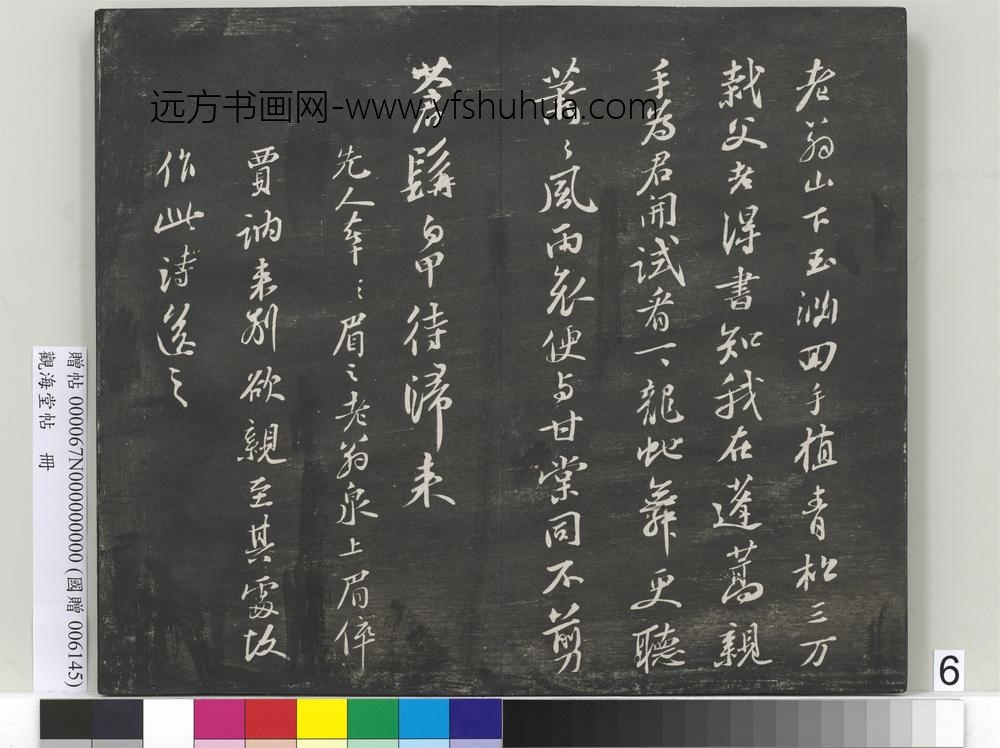 老翁山下玉淵回手植青松三万
栽父老得書知我在蓬蒿親
手為君開試看一〻龍蛇舞更聽
蕭〻風雨哀便与甘棠同不剪
蒼髯白甲待歸来
先人葬眉之老翁泉上眉倅
賈訥来別欲親至其處故
作此詩送之
远方书画网-www.yfshuhua.com
贈帖 000067N000000000 (國贈 006145)
觀海堂帖 冊
6